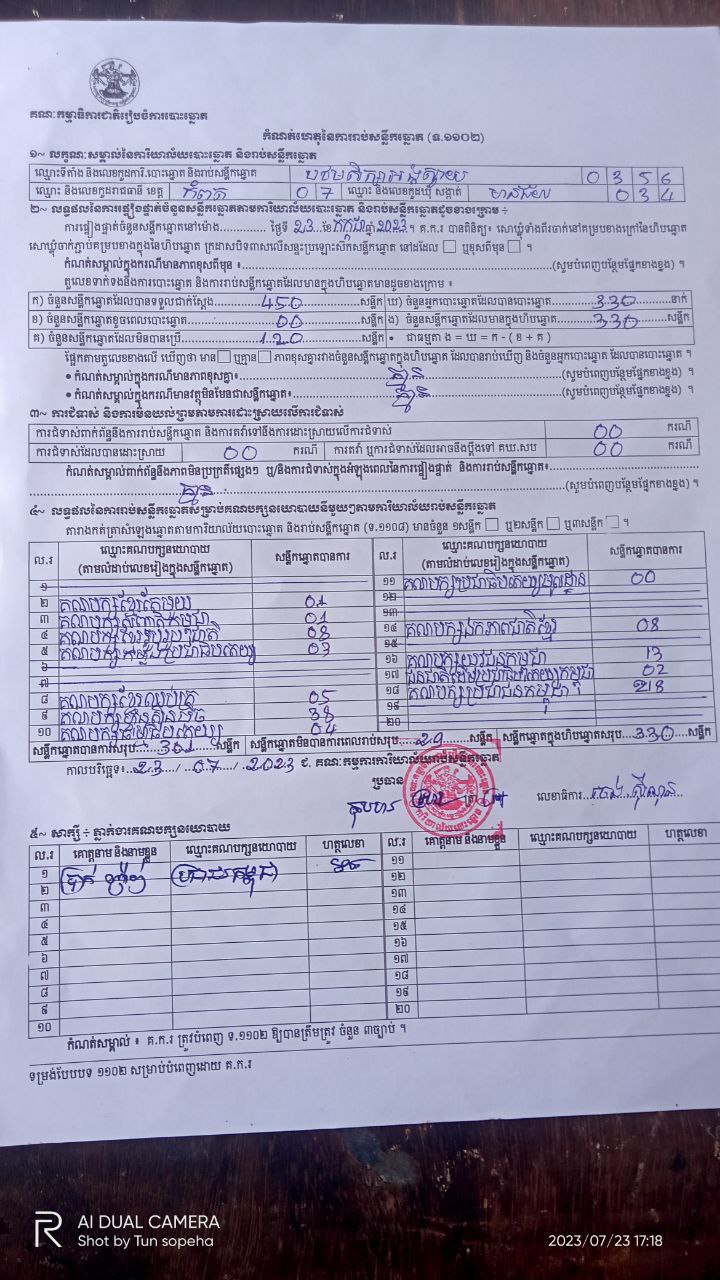 គណៈកម្មាធិការជាតិរៀបចំការបោះឆ្នោត
កំណត់ហេតុនៃការរាប់សន្លឹកឆ្នោត (ទ.១១០២)
១~ លក្ខណៈសម្គាល់នៃការិយាល័យបោះឆ្នោត និងរាប់សន្លឹកឆ្នោត
ឈ្មោះទីតាំង និងលេខកូដការិ.បោះឆ្នោត និងរាប់សន្លឹកឆ្នោត 0 3 5 6
ឈ្មោះ និងលេខកូដរាជធានី ខេត្ត កំពត 0 7 ឈ្មោះ និងលេខកូដឃុំ សង្កាត់ 0 3 4
២~ លទ្ធផលនៃការផ្ទៀងផ្ទាត់ចំនួនសន្លឹកឆ្នោតតាមការិយាល័យបោះឆ្នោត និងរាប់សន្លឹកឆ្នោតដូចខាងក្រោម ÷
ការផ្ទៀងផ្ទាត់ចំនួនសន្លឹកឆ្នោតនៅម៉ោង............ ថ្ងៃទី 23 ខែ កក្កដា ឆ្នាំ 2023 ។ គ.ក.រ បានពិនិត្យ៖ សោឃ្លុំទាំងពីរចាក់នៅគម្របខាងក្រៅនៃហិបឆ្នោត
សោឃ្លុំចាក់ភ្ជាប់គម្របខាងក្នុងនៃហិបឆ្នោត ក្រដាសបិទពាសលើសន្ទះប្រឡោះស៊កសន្លឹកឆ្នោត នៅដដែល □ ឬខុសពីមុន □ ។
កំណត់សម្គាល់ក្នុងករណីមានភាពខុសពីមុន ៖..........(សូមបំពេញបន្ថែមផ្នែកខាងខ្នង) ។
តួលេខទាក់ទងនឹងការបោះឆ្នោត និងការរាប់សន្លឹកឆ្នោតដែលមានក្នុងហិបឆ្នោតមានដូចខាងក្រោម ៖
ក) ចំនួនសន្លឹកឆ្នោតដែលបានទទួលជាក់ស្តែង 450 សន្លឹក ឃ) ចំនួនអ្នកបោះឆ្នោតដែលបានបោះឆ្នោត 330 នាក់
ខ) ចំនួនសន្លឹកឆ្នោតខូចពេលបោះឆ្នោត 00 សន្លឹក ង) ចំនួនសន្លឹកឆ្នោតដែលមានក្នុងហិបឆ្នោត 330 សន្លឹក
គ) ចំនួនសន្លឹកឆ្នោតដែលមិនបានប្រើ 120 សន្លឹក • ជាធម្មតា ង = ឃ = ក - ( ខ + គ )
ផ្អែកតាមតួលេខខាងលើ ឃើញថា មាន □ ឬគ្មាន □ ភាពខុសគ្នារវាងចំនួនសន្លឹកឆ្នោតក្នុងហិបឆ្នោត ដែលបានរាប់ឃើញ និងចំនួនអ្នកបោះឆ្នោត ដែលបានបោះឆ្នោត ។
• កំណត់សម្គាល់ក្នុងករណីមានភាពខុសគ្នា៖ គ្មាន (សូមបំពេញបន្ថែមផ្នែកខាងខ្នង) ។
• កំណត់សម្គាល់ក្នុងករណីមានវត្ថុមិនមែនជាសន្លឹកឆ្នោត៖ គ្មាន (សូមបំពេញបន្ថែមផ្នែកខាងខ្នង) ។
៣~ ការជំទាស់ និងការមិនយល់ព្រមតាមការដោះស្រាយលើការជំទាស់
ការជំទាស់ពាក់ព័ន្ធនឹងការរាប់សន្លឹកឆ្នោត និងការតវ៉ាទៅនឹងការដោះស្រាយលើការជំទាស់ 00 ករណី
ការជំទាស់ដែលបានដោះស្រាយ 00 ករណី ការតវ៉ា ឬការជំទាស់ដែលអាចនឹងប្តឹងទៅ គឃ.សប 00 ករណី
កំណត់សម្គាល់ពាក់ព័ន្ធនឹងភាពមិនប្រក្រតីផ្សេងៗ ឬ/និងការជំទាស់ក្នុងអំឡុងពេលនៃការផ្ទៀងផ្ទាត់ និងការរាប់សន្លឹកឆ្នោត៖
គ្មាន (សូមបំពេញបន្ថែមផ្នែកខាងខ្នង) ។
៤~ លទ្ធផលនៃការរាប់សន្លឹកឆ្នោតសម្រាប់គណបក្សនយោបាយនីមួយៗតាមការិយាល័យរាប់សន្លឹកឆ្នោត
តារាងកត់ត្រាសំឡេងឆ្នោតតាមការិយាល័យបោះឆ្នោត និងរាប់សន្លឹកឆ្នោត (ទ.១១០៨) មានចំនួន ១សន្លឹក □ ឬ២សន្លឹក □ ឬ៣សន្លឹក □ ។
ល.រ ឈ្មោះគណបក្សនយោបាយ (តាមលំដាប់លេខរៀងក្នុងសន្លឹកឆ្នោត) សន្លឹកឆ្នោតបានការ ល.រ ឈ្មោះគណបក្សនយោបាយ (តាមលំដាប់លេខរៀងក្នុងសន្លឹកឆ្នោត) សន្លឹកឆ្នោតបានការ
១ ១១ គណបក្សប្រជាធិបតេយ្យមូលដ្ឋាន 00
២ គណបក្សខ្មែរតែមួយ 01 ១២
៣ គណបក្សសញ្ជាតិកម្ពុជា 01 ១៣
៤ គណបក្សខ្មែររួបរួមជាតិ 08 ១៤ គណបក្សឯកភាពជាតិខ្មែរ 08
៥ គណបក្សកម្លាំងប្រជាធិបតេយ្យ 03 ១៥
៦ ១៦ គណបក្សយុវជនកម្ពុជា 13
៧ ១៧ ជនជាតិដើមប្រជាធិបតេយ្យកម្ពុជា 02
៨ គណបក្ស 05 ១៨ គណបក្សប្រជាជនកម្ពុជា 218
៩ គណបក្សហ្វ៊ុនស៊ិនប៉ិច 38 ១៩
១០ 04 ២០
សន្លឹកឆ្នោតបានការសរុប 301 សន្លឹក សន្លឹកឆ្នោតមិនបានការពេលរាប់សរុប 29 សន្លឹក សន្លឹកឆ្នោតក្នុងហិបឆ្នោតសរុប 330 សន្លឹក
កាលបរិច្ឆេទ៖ 23 / 07 / 2023 ជ. គណៈកម្មការការិយាល័យរាប់សន្លឹកឆ្នោត
ប្រធាន
លេខាធិការ
៥~ សាក្សី ÷ ភ្នាក់ងារគណបក្សនយោបាយ
ល.រ គោត្តនាម និងនាមខ្លួន ឈ្មោះគណបក្សនយោបាយ ហត្ថលេខា ល.រ គោត្តនាម និងនាមខ្លួន ឈ្មោះគណបក្សនយោបាយ ហត្ថលេខា
១ ប្រជាជនកម្ពុជា ១១
២ ១២
៣ ១៣
៤ ១៤
៥ ១៥
៦ ១៦
៧ ១៧
៨ ១៨
៩ ១៩
១០ ២០
កំណត់សម្គាល់ ៖ គ.ក.រ ត្រូវបំពេញ ទ.១១០២ ឱ្យបានត្រឹមត្រូវ ចំនួន ៣ច្បាប់ ។
ទម្រង់បែបបទ ១១០២ សម្រាប់បំពេញដោយ គ.ក.រ
AI DUAL CAMERA
Shot by Tun sopeha
2023/07/23 17:18